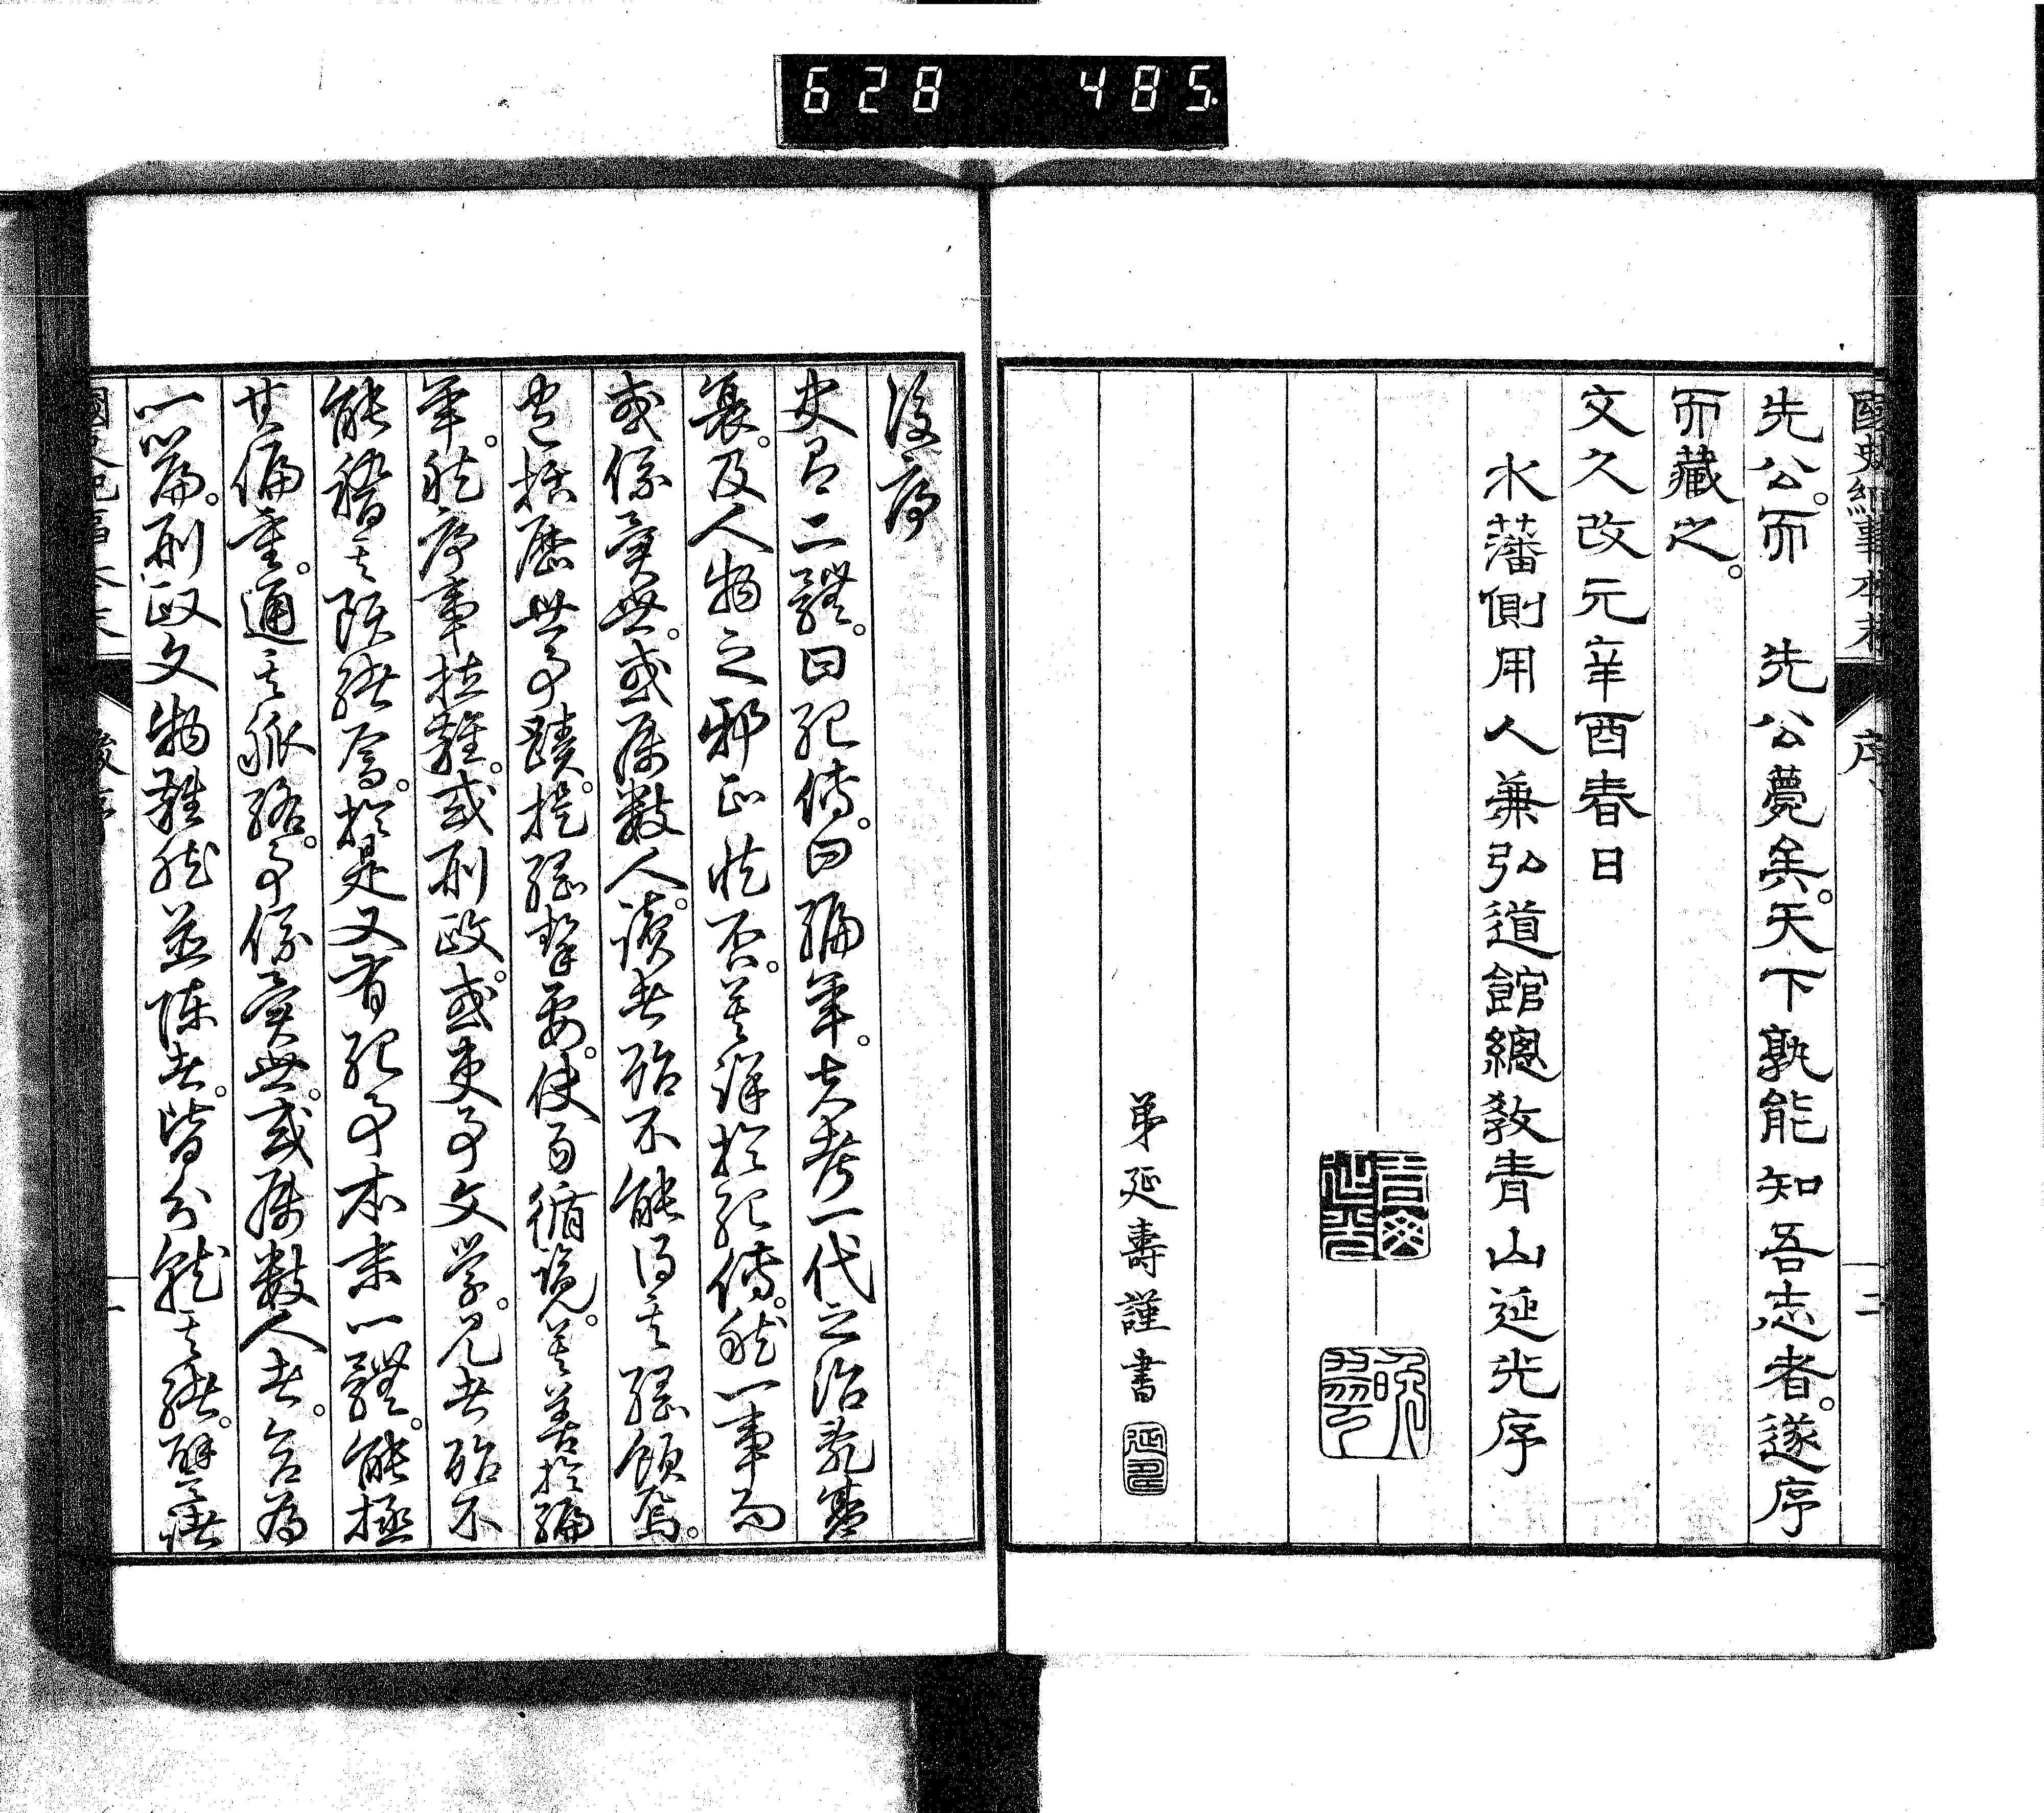 628 485
國史紀事本末 序 二
先公。而 先公薨矣。天下孰能知吾志者。遂序
而藏之。
文久改元辛酉春日
水藩側用人兼弘道館總教青山延光序
弟延壽謹書
後序
史有二體。曰紀傳。曰編年。夫考一代之治亂盛
衰。及人物之邪正忠否。莫詳於紀傳。然一事而
或係異世。或屬數人。讀者殆不能得其綱領焉。
包括歷世事蹟。提綱擧要。使易循覽。莫善於編
年。然序事拉雜。或刑政。或吏事文學。見者殆不
能豁其脈絡焉。於是又有紀事本末一體。能極
其偏重。通其脈絡。事係異世。或屬數人者。合爲
一篇。刑政文物雜然並陳者。皆分就其緒。譬諸
後序 一